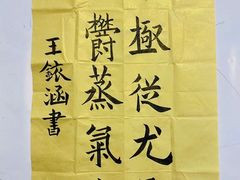 極從尤
欝蒸氣
王銥涵書